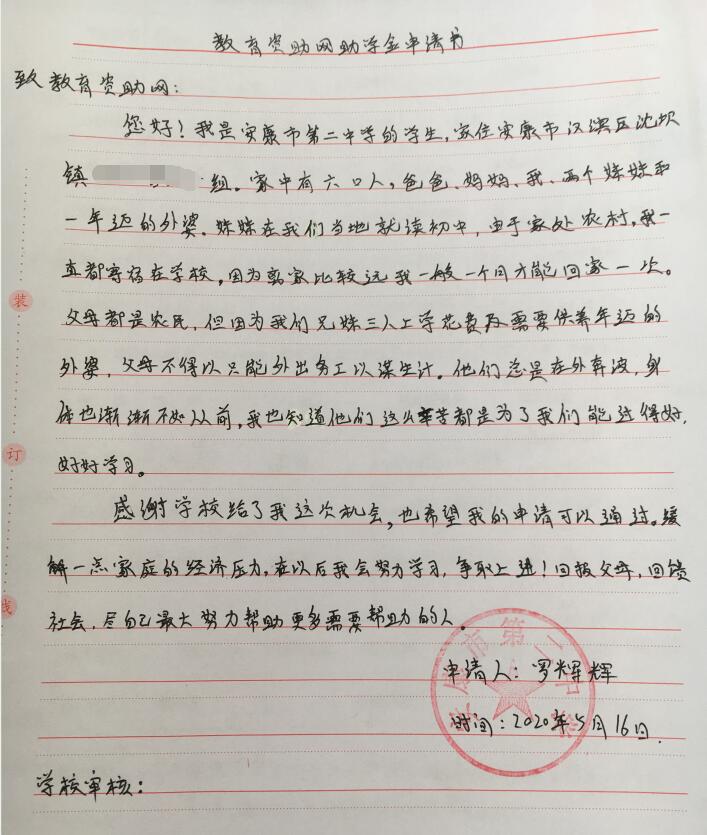 教育资助网助学金申请书
致教育资助网：
您好！我是安康市第二中学的学生，家住安康市汉滨区沈坝
镇 组。家中有六口人，爸爸、妈妈、我、两个妹妹和
一年迈的外婆。妹妹在我们当地就读初中，由于家处农村，我一
直都寄宿在学校，因为离家比较远我一般一个月才能回家一次。
父母都是农民，但因为我们兄妹三人上学花费及需要供养年迈的
外婆，父母不得以只能外出务工以谋生计。他们总是在外奔波，身
体也渐渐不如从前，我也知道他们这么辛苦都是为了我们能过得好，
好好学习。
感谢学校给了我这次机会，也希望我的申请可以通过。缓
解一点家庭的经济压力，在以后我会努力学习，争取上进！回报父母，回馈
社会，尽自己最大努力帮助更多需要帮助的人。
申请人：罗辉辉
时间：2020年5月16日.
学校审核：
装
订
线
安康市第二中学